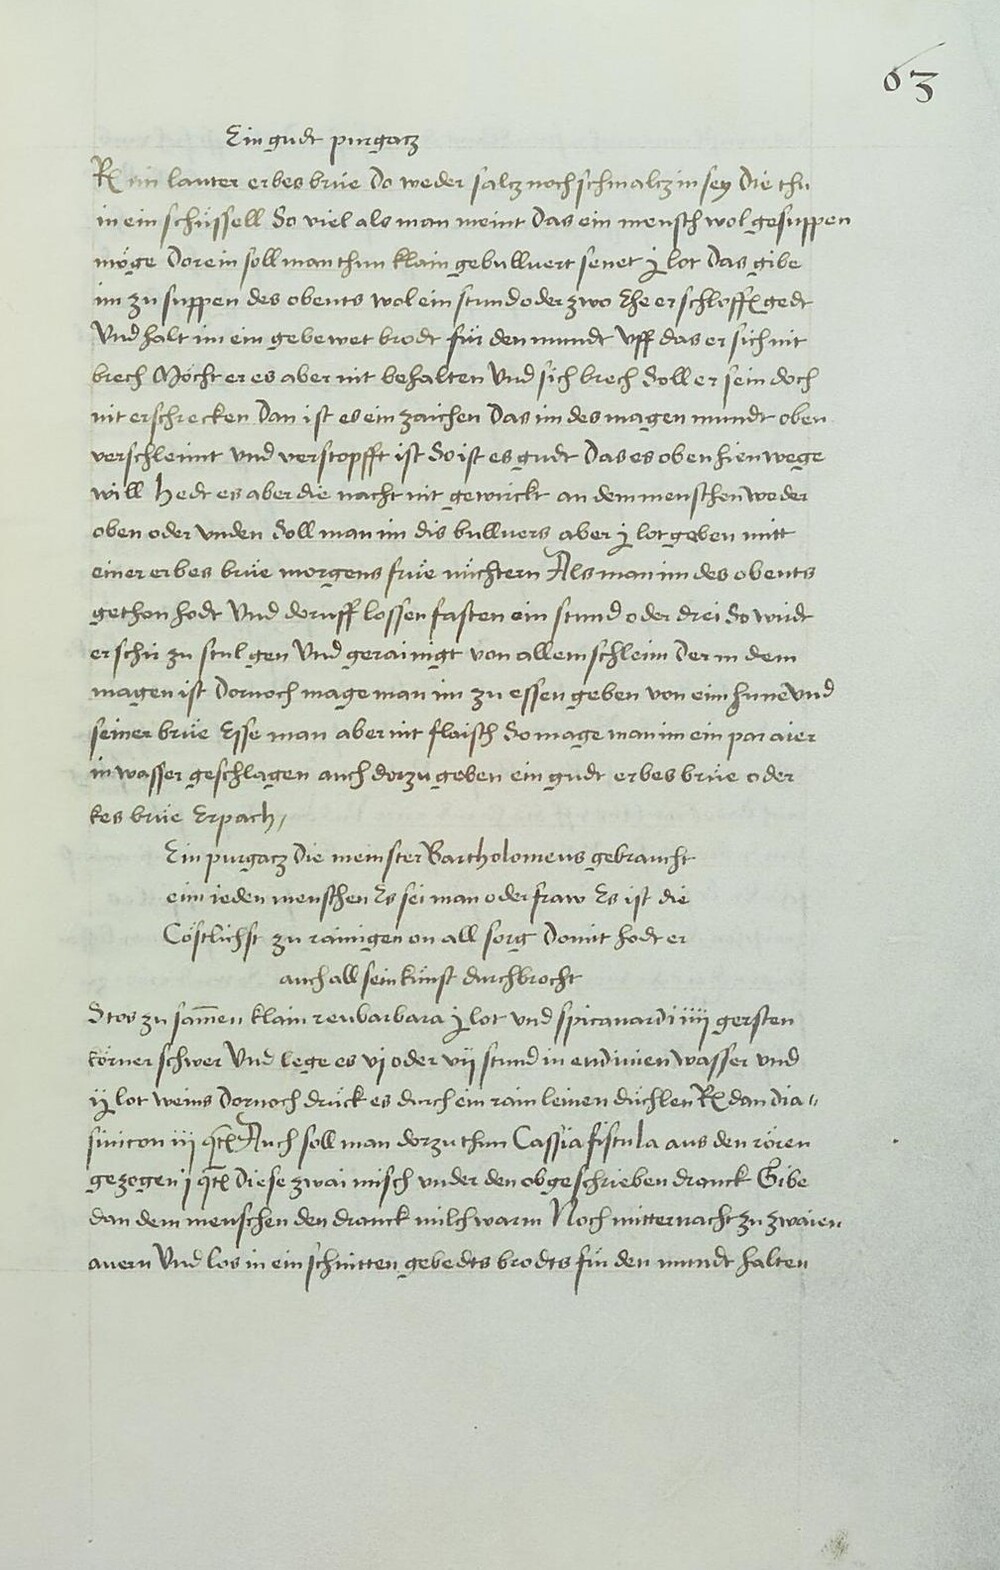 63
Ein gudt purgatz
Rx ein lauter erbes brüe Do weder saltz noch schmaltz in sey Die thu
in ein schüssell So viel als man meint Das ein mensch wol gesuppen
möge Dorein soll man thun klain gebullvert senet j lot Das gibe
im zu suppen des obents wol ein stund oder zwo Ehe er schloffen gedt
Vnd halt im ein gebewet brodt für den mundt Vff das er sich nit
brech Möcht er es aber nit behalten Vnd sich brech Soll er sein doch
nit erschrecken Dan ist es ein zaichen Das im des magen mundt oben
verschleimt vnd verstopfft ist So ist es gudt Das es oben hienwege
will Hedt es aber die nacht nit gewürckt an dem menschen weder
oben oder vnden Soll man im dis bullvers aber j lot geben mitt
einer erbes brüe morgens früe nüchtern Als man im des obents
gethon hodt Vnd doruff lossen fasten ein stund oder drei So wirdt
er schir zu stul gen Vnd gerainigt von allem schleim Der in dem
magen ist Dornoch mage man im zu essen geben von eim hune Vnd
seiner brüe Esse man aber nit flaisch So mage man im ein par aier
in wasser geschlagen auch dorzu geben ein gudt erbes brüe oder
kes brüe Erpach/
Ein purgatz Die meinster Bartholomeus gebraucht
eim ieden menschen Es sei man oder fraw Es ist die
Cöstlichst zu rainigen on all sorg Domit hodt er
auch all sein künst durchbrocht
Stos zu sam̄en klain reubarbara j lot vnd spicanardi iiij gersten
körner schwer Vnd lege es vj oder vij stund in endiuien wasser vnd
ij lot weins Dornoch drück es durch ein rain leinen düchlen Rx dan Dia⸗
finicon iij qt Auch soll man dorzu thun Cassia fistula aus den rören
gezogen j qt Diese zwai misch vnder den obgeschrieben dranck Gibe
dan dem menschen den dranck milch warm Noch mitternacht zu zwaien
auern Vnd los in ein schnitten gebedts brodts für den mundt halten